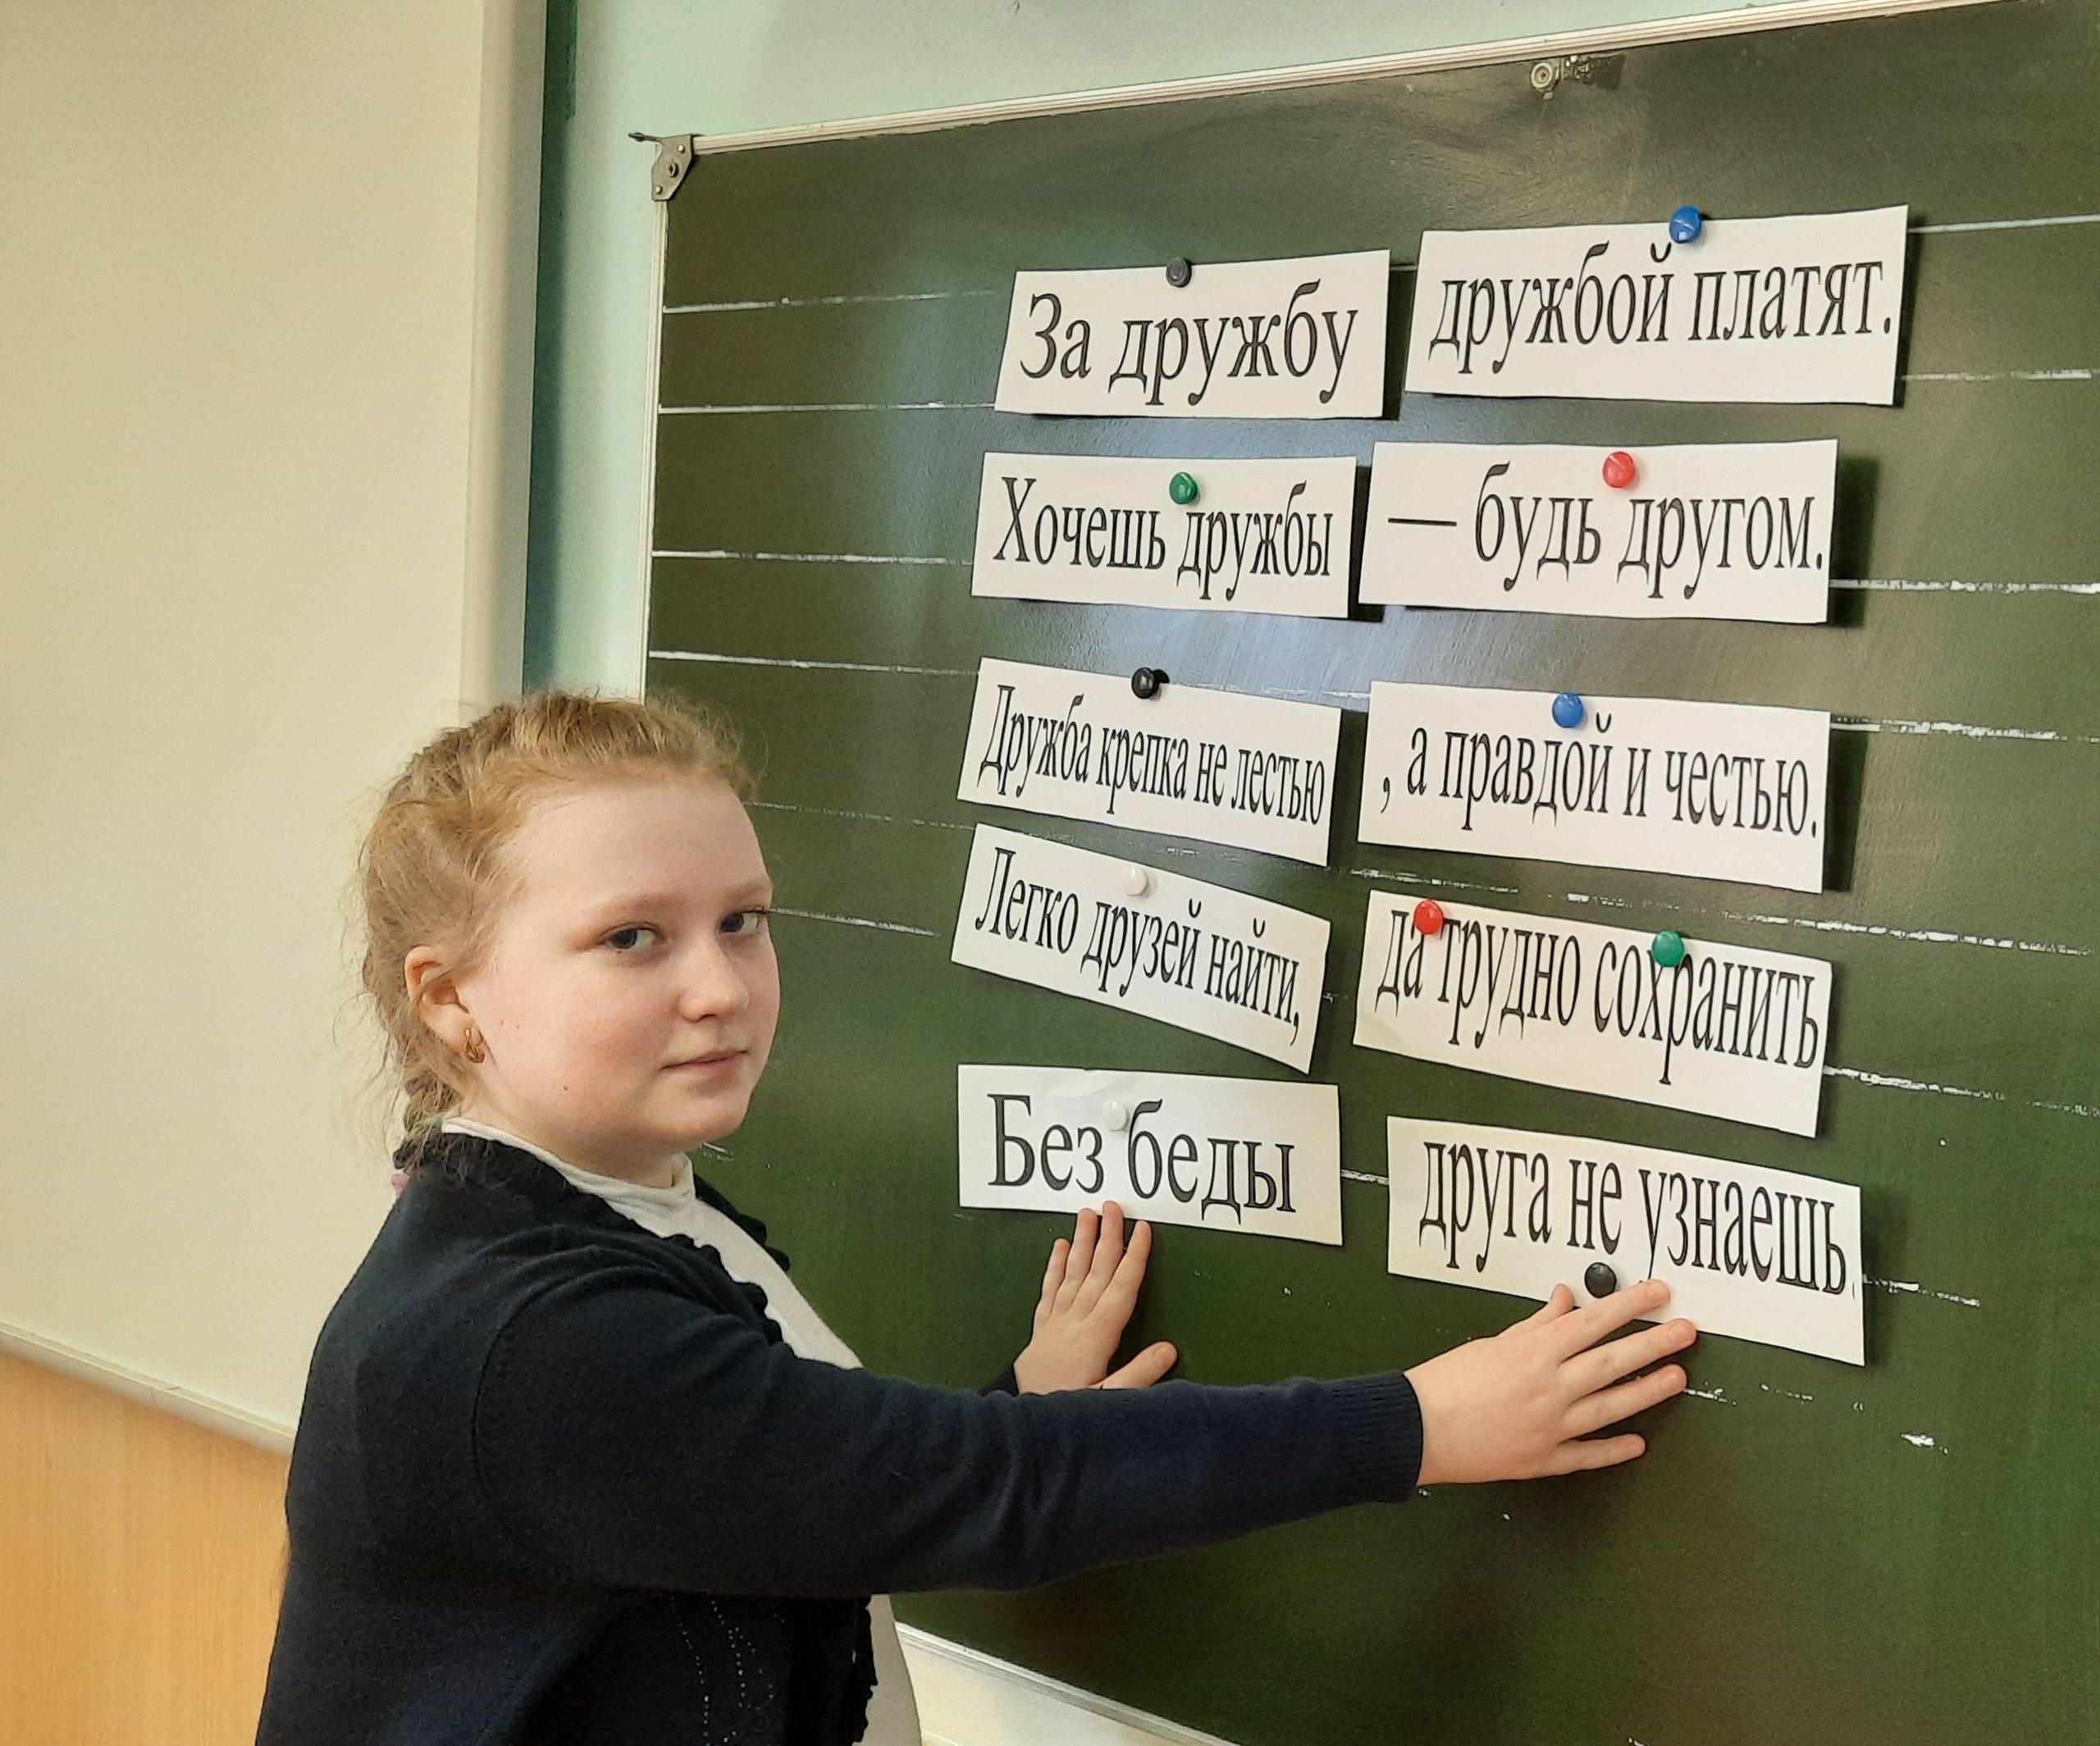 За дружбу дружбой платят.
Хочешь дружбы — будь другом.
Дружба крепка не лестью , а правдой и честью.
Легко друзей найти, да трудно сохранить
Без беды друга не узнаешь.